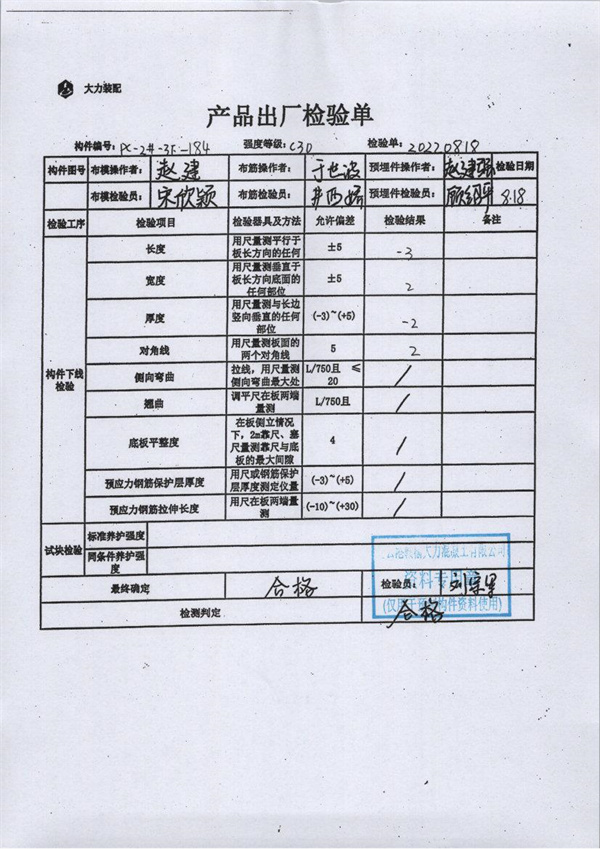 大力装配
产品出厂检验单
构件编号: PC-2#-3F-184 强度等级: C30 检验单: 20220818
构件图号 布模操作者: 赵建 布筋操作者: 于世波 预埋件操作者: 赵建强 检验日期
布模检验员: 宋欣颖 布筋检验员: 预埋件检验员: 8.18
检验工序 检验项目 检验器具及方法 允许偏差 检验结果 备注
构件下线检验
长度 用尺量测平行于板长方向的任何 ±5 -3
宽度 用尺量测垂直于板长方向底面的任何部位 ±5 2
厚度 用尺量测与长边竖向垂直的任何部位 (-3)~(+5) -2
对角线 用尺量测板面的两个对角线 5 2
侧向弯曲 拉线，用尺量测侧向弯曲最大处 L/750且 ≤20 /
翘曲 调平尺在板两端量测 L/750且 /
底板平整度 在板侧立情况下，2m靠尺、塞尺量测靠尺与底板的最大间隙 4 /
预应力钢筋保护层厚度 用尺或钢筋保护层厚度测定仪量 (-3)~(+5) /
预应力钢筋拉伸长度 用尺在板两端量测 (-10)~(+30) /
试块检验 标准养护强度
同条件养护强度
最终确定 合格 检验员:
检测判定 合格
大力混凝土有限公司
资料专用章
(仅用于预制构件资料使用)